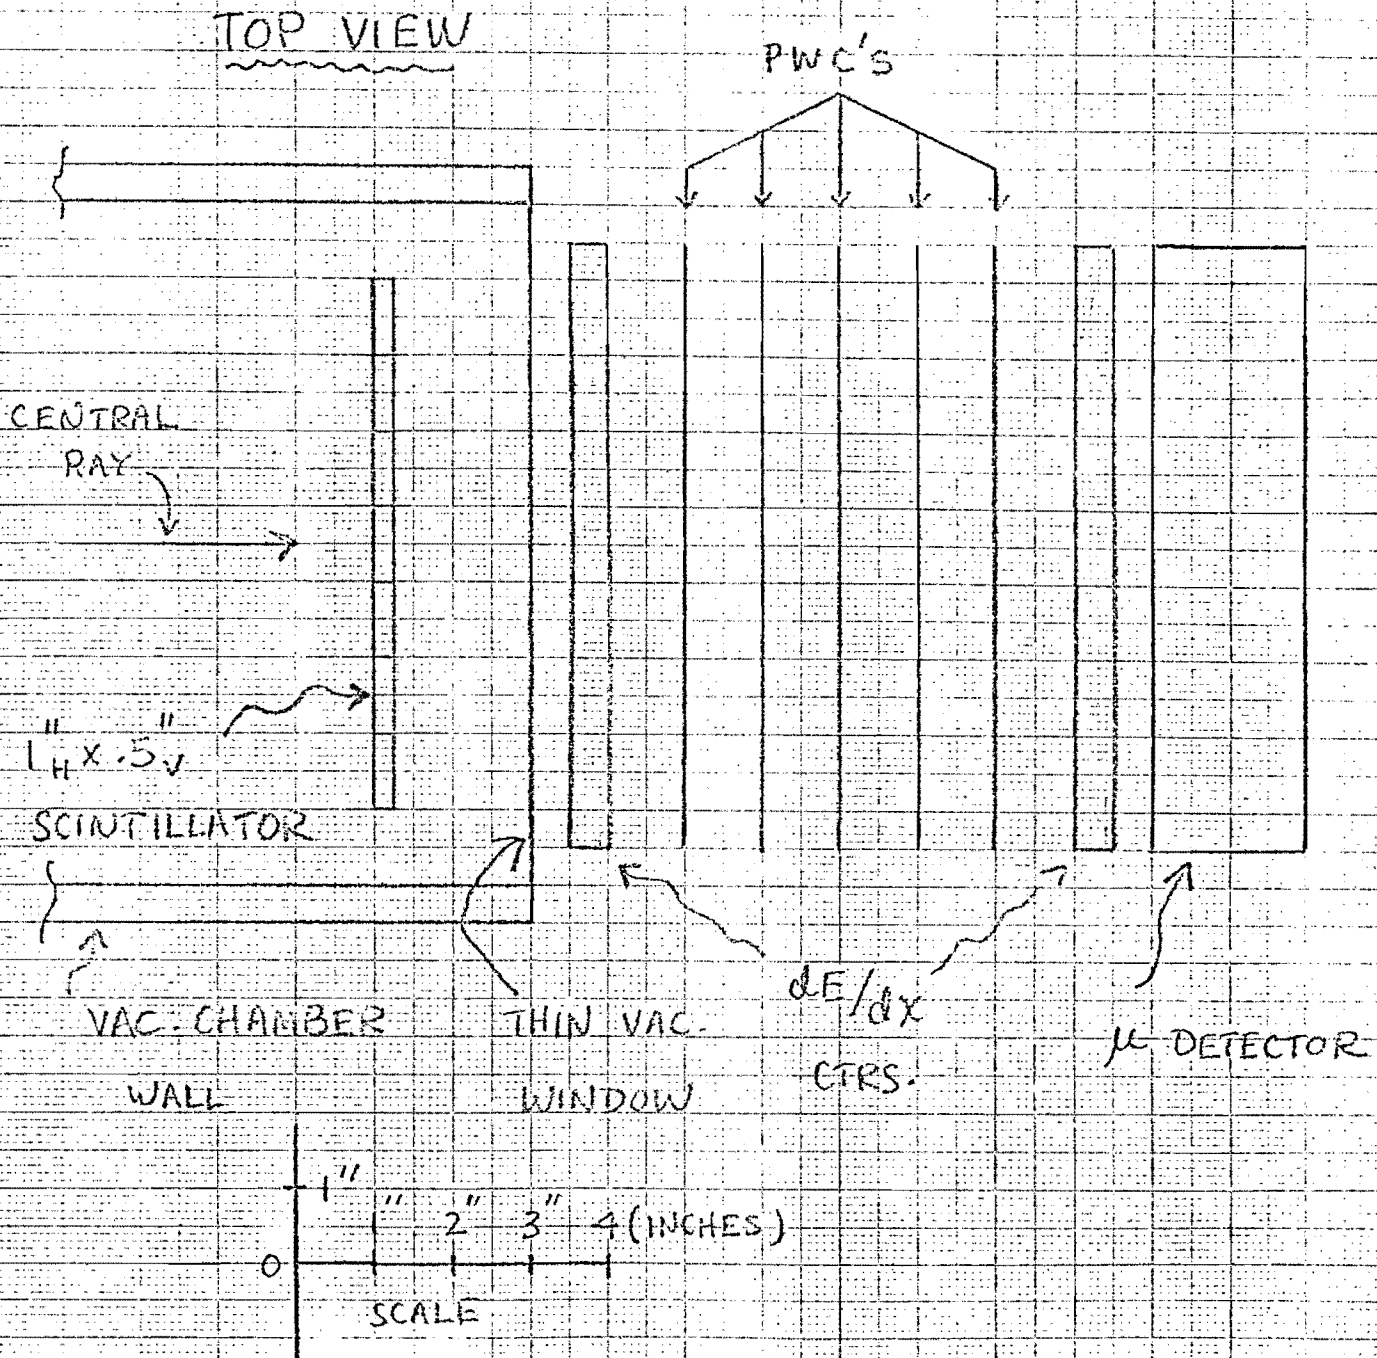 TOP VIEW
PWC'S
CENTRAL
RAY
1"H x .5"V
SCINTILLATOR
VAC. CHAMBER
WALL
THIN VAC.
WINDOW
dE/dx
CTRS.
μ DETECTOR
1"
1" 2" 3" 4 (INCHES)
0
SCALE